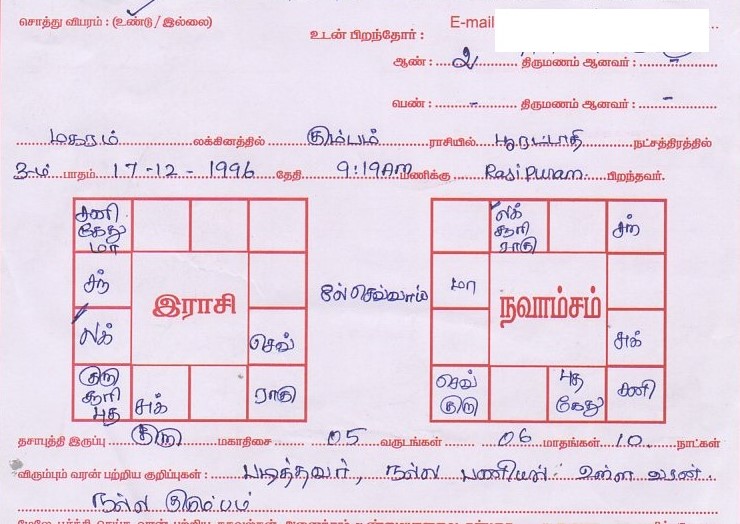 சொத்து விபரம் : (உண்டு / இல்லை)
E-mail
உடன் பிறந்தோர் :
ஆண் : 2 திருமணம் ஆனவர் : -
பெண் : - திருமணம் ஆனவர் : -
மகரம் லக்கினத்தில் கும்பம் ராசியில் பூரட்டாதி நட்சத்திரத்தில்
3-ம் பாதம் 17-12-1996 தேதி 9:19AM மணிக்கு Rasipuram பிறந்தவர்.
சனி கேது மா
சந்
லக்
குரு சூரி புத
சுக்
ராகு
செவ்
இராசி
செவ்வாய்
லக் சூரி ராகு
சந்
மா
நவாம்சம்
சுக்
செவ் குரு
புத கேது
சனி
தசாபுத்தி இருப்பு குரு மகாதிசை 05 வருடங்கள் 06 மாதங்கள் 10 நாட்கள்
விரும்பும் வரன் பற்றிய குறிப்புகள் : படித்தவர், நல்ல பணியில் உள்ள வரன்.
நல்ல குடும்பம்